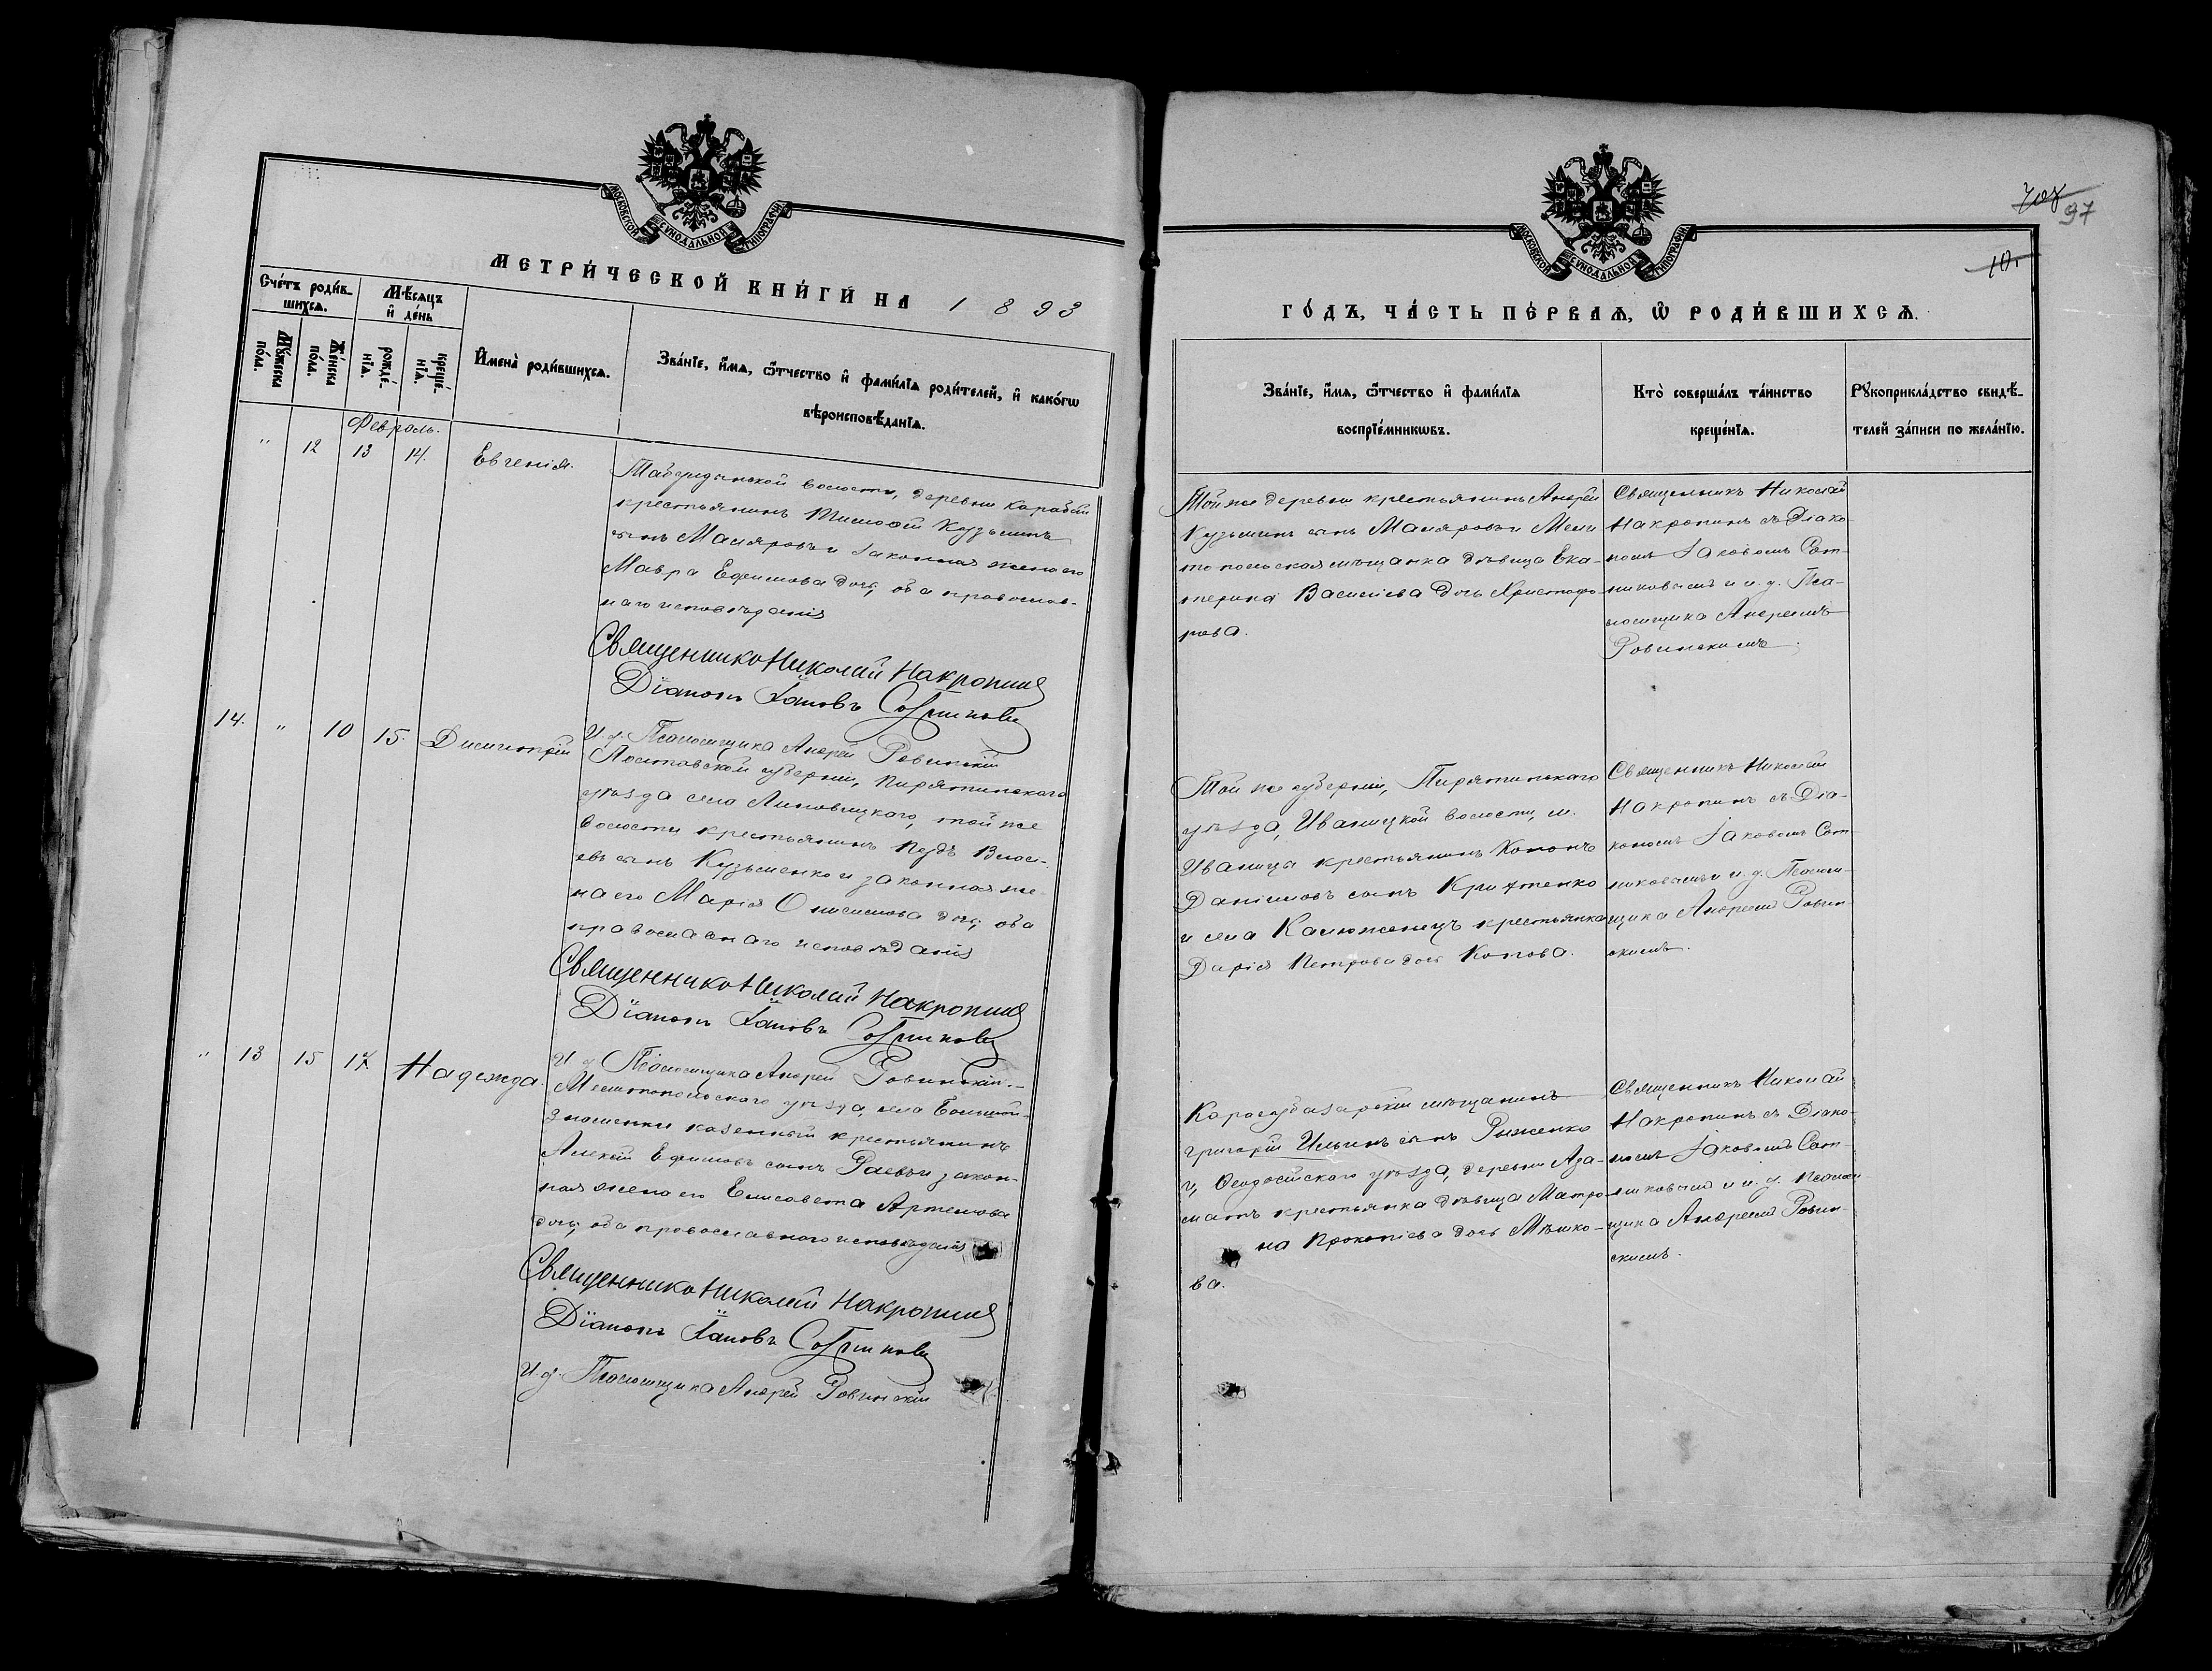 МОСКОВСКОЙ СУНОДАЛЬНОЙ ТИПОГРАФІИ
МЕТРИЧЕСКОЙ КНИГИ НА 1893
Счетъ родив-
шихся.
Мужеска
пола.
Женска
пола.
Мѣсяцъ
и день
рожде-
нія.
креще-
нія.
Имена родившихся.
Званіе, имя, отчество и фамилія родителей, и какогω
вѣроисповѣданія.
Февраль.
" 12 13 14. Евгенія.
Табулдынской волости, деревни Карабай
крестьянинъ Тимофей Кузьминъ
сынъ Маляровъ и законная жена его
Мавра Ефимова дочь, оба православ-
наго исповѣданія
Священникъ Николай Накропинъ
Діаконъ Іаковъ Сотниковъ
И. д. Псаломщика Андрей Ровинскій
14. " 10 15. Димитрій
Полтавской губерніи, Пирятинскаго
уѣзда села Линовицкаго, той же
волости крестьянинъ
сынъ Кузьменко и законная же-
на его Марія Онисимова дочь, оба
православнаго исповѣданія
Священникъ Николай Накропинъ
Діаконъ Іаковъ Сотниковъ
И. д. Псаломщика Андрей Ровинскій.
" 13 15 17 Надежда.
Мелитопольскаго уѣзда, села Большой-
Знаменки казенный крестьянинъ
Алексѣй Ефимовъ сынъ Раевъ и закон-
ная жена его Елисавета Артемова
дочь, оба православнаго исповѣданія
Священникъ Николай Накропинъ
Діаконъ Іаковъ Сотниковъ
И. д. Псаломщика Андрей Ровинскій
97
10.
МОСКОВСКОЙ СУНОДАЛЬНОЙ ТИПОГРАФІИ
ГОДЪ, ЧАСТЬ ПЕРВАЯ, Ѿ РОДИВШИХСЯ.
Званіе, имя, отчество и фамилія
воспріемникωвъ.
Кто совершалъ таинство
крещенія.
Рукоприкладство свидѣ-
телей записи по желанію.
Той же деревни крестьянинъ Андрей
Кузьминъ сынъ Маляровъ и Мели-
топольская мѣщанка дѣвица Ека-
терина Васильева дочь Христофо-
рова.
Священникъ Николай
Накропинъ съ Діако-
номъ Іаковомъ Сот-
никовымъ и и. д. Пса-
ломщика Андреемъ
Ровинскимъ.
Той же губерніи, Пирятинскаго
уѣзда, Иваницкой волости, м.
Иваницы крестьянинъ Кононъ
Даніиловъ сынъ
и села Калюженецъ крестьянка
Дарія Петрова дочь Копова.
Священникъ Николай
Накропинъ съ Діа-
кономъ Іаковомъ Сот-
никовымъ и и. д. Псалом-
щика Андреемъ Ровин-
скимъ.
Карасубазарскій мѣщанинъ
Григорій Ильинъ сынъ Рыженко
и, Ѳеодосійскаго уѣзда, деревни Аза-
матъ крестьянка дѣвица Матро-
на Прокопіева дочь Мѣшко-
ва.
Священникъ Николай
Накропинъ съ Діако-
номъ Іаковомъ Сот-
никовымъ и и. д. Псалом-
щика Андреемъ Ровин-
скимъ.